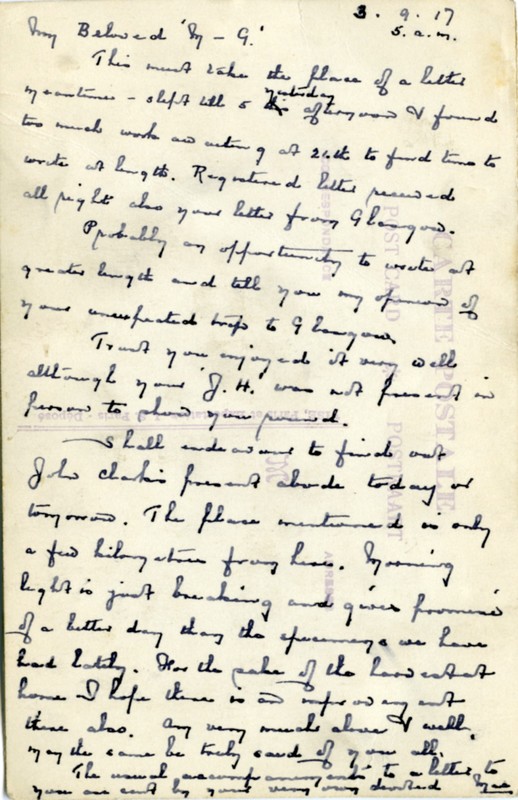 3.9.17
5.a.m.
My Beloved 'M-G.'
This must take the place of a letter
meantime - slept till 5 yesterday afternoon & found
too much work as acting q at 26th to find time to
write at length. Registered letter received
all right also your letter from Glasgow.
Probably an opportunity to write at
greater length and tell you my opinion of
your unexpected trip to Glasgow.
Trust you enjoyed it very well
although your 'J.H.' was not present in
person to show you round.
Shall endeavour to find out
John Clark's present abode today or
tomorrow. The place mentioned is only
a few kilometres from here. Morning
light is just breaking and gives promise
of a better day than the specimens we have
had lately. For the sake of the harvest at
home I hope there is an improvement
there also. Am very much alive & well,
may the same be truly said of you all.
The usual accompaniments to a letter to
you are sent by your very own devoted
CARTE POSTALE
POST CARD
CORRESPONDENCE
POSTKAART